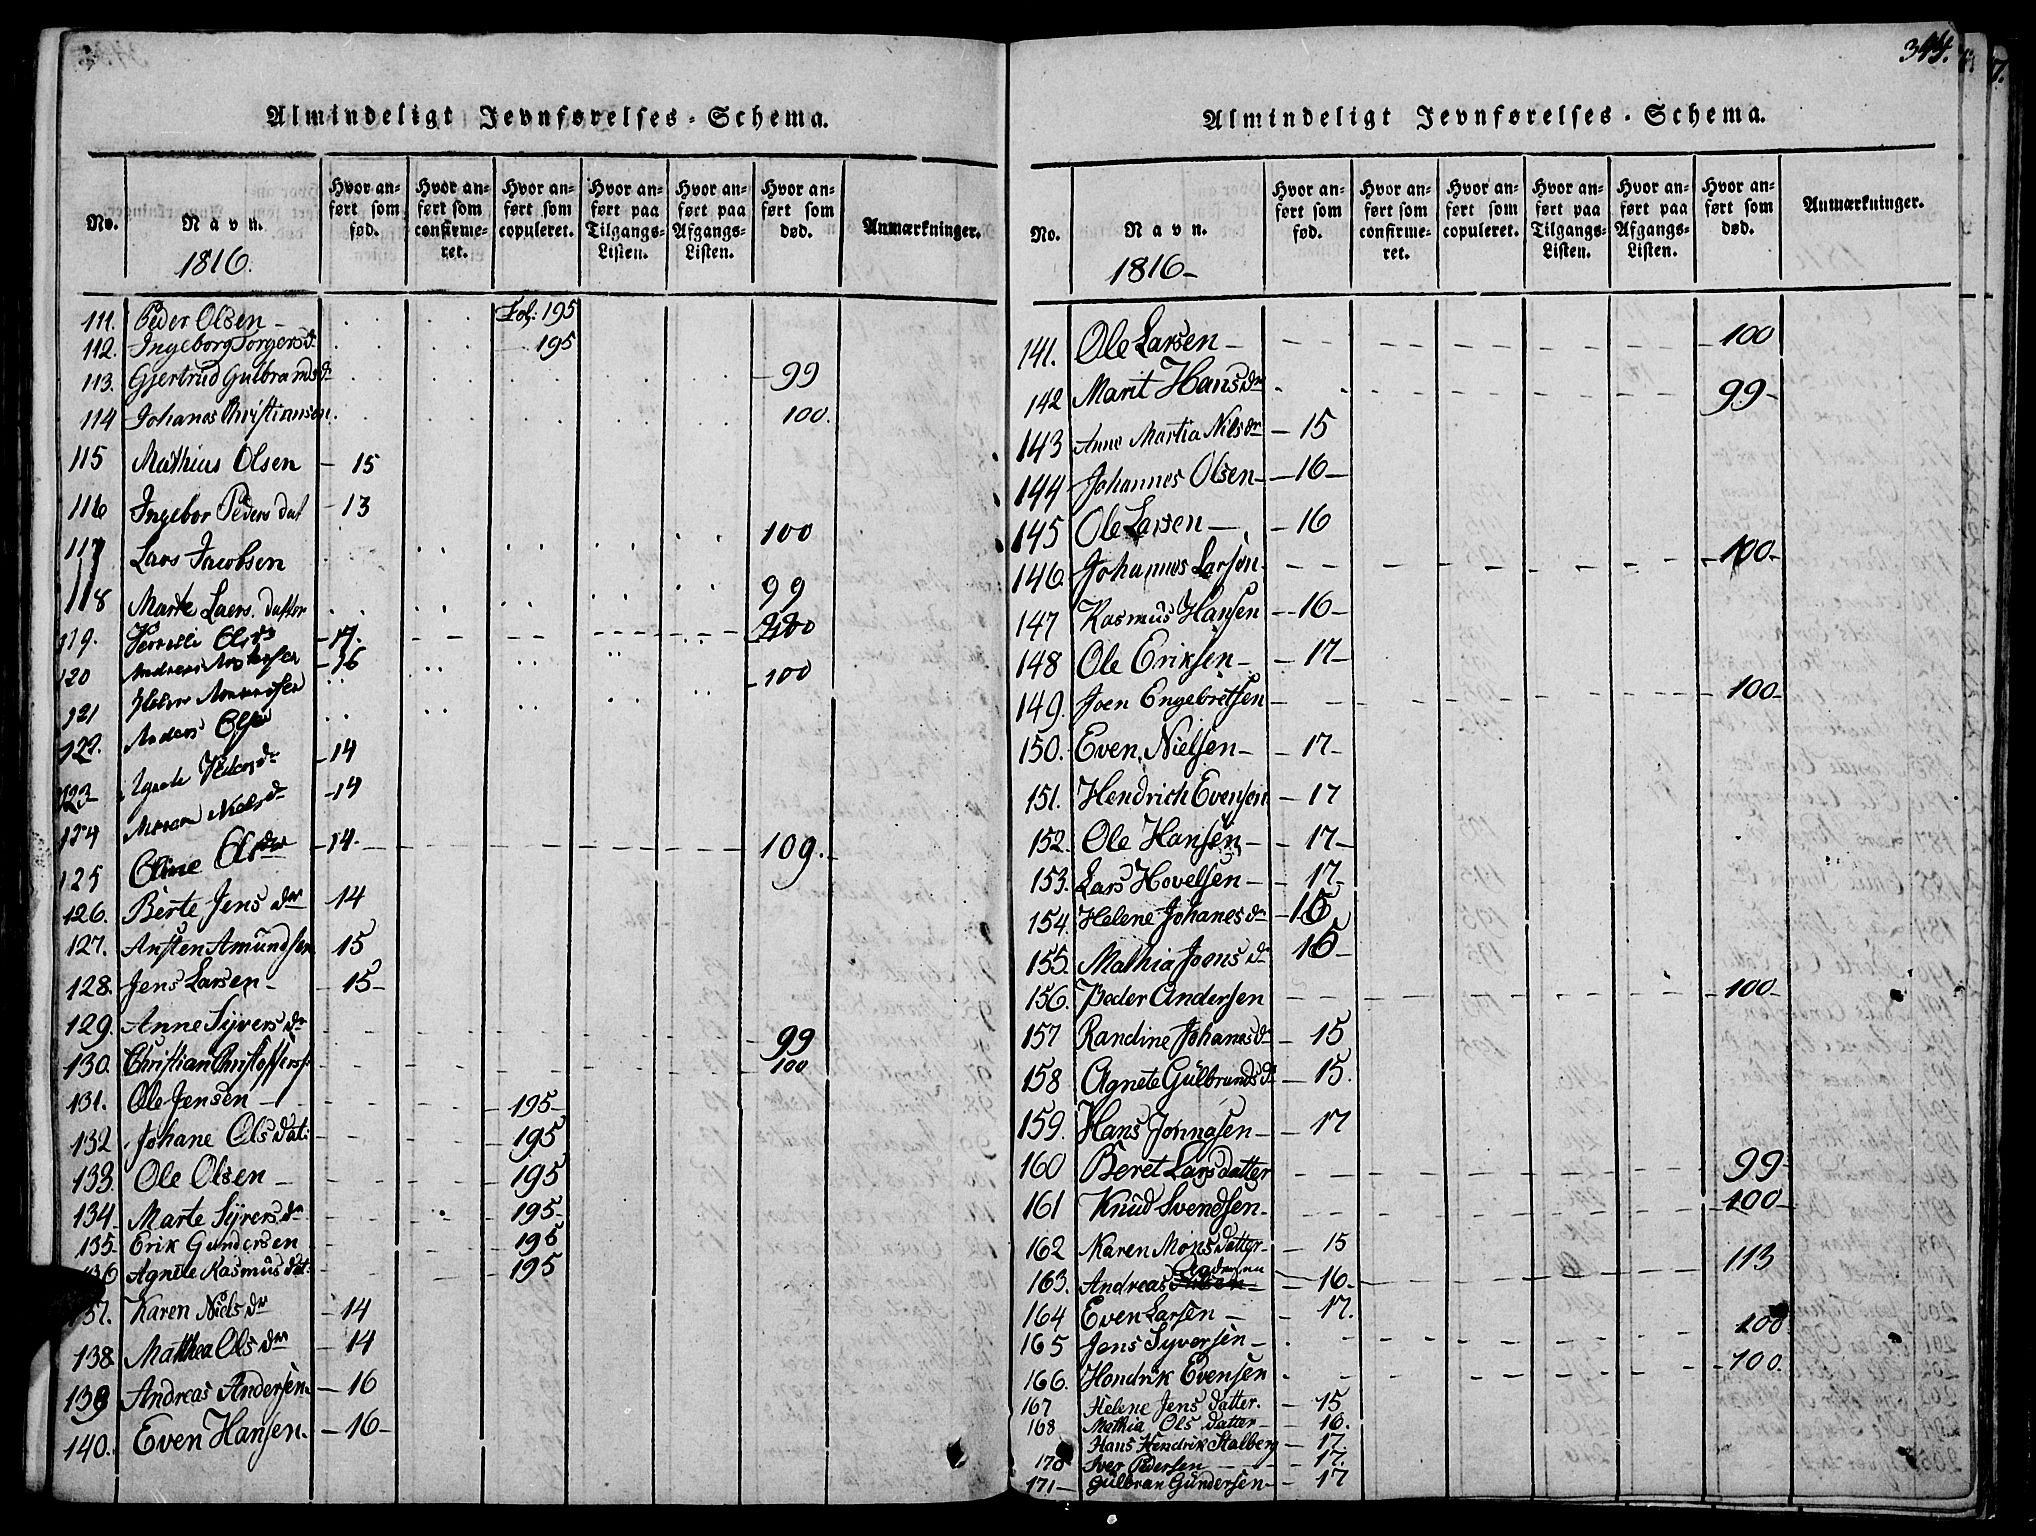 Almindeligt Jevnførelses-Schema.
No. Navn. Hvor anført som fød. Hvor anført som confirmeret. Hvor anført som copuleret. Hvor anført paa Tilgangs-Listen. Hvor anført paa Afgangs-Listen. Hvor anført som død. Anmærkninger.
1816.
111. Peder Olsen - Fol. 195
112. Ingeborg Torgersdr 195
113. Gjertrud Gulbrandsdr 99
114 Johanes Christiansen. 100.
115 Mathias Olsen - 15
116 Ingebor Peders dat - 13
117 Lars Jacobsen 100
118 Marte Laers datter 99
119. Olsdr - 17. 200
120 Andreas - 16
121 100
122. Anders Olsen
123 - 14
124 Nielsdr - 14
125 Oline Olsdr - 14. 109.
126. Berte Jens dr 14
127. Ansten Amundsen 15
128. Jens Larsen - 15 -
129. Anne Syversdr 99
130. Christian Christoffers. 100
131. Ole Jensen - 195 -
132 Johane Olsdat: 195
133. Ole Olsen - 195
134. Marte Syversdr 195 -
135. Erik Gundersen 195
136 Agnete Rasmusdat: 195
137. Karen Niels dr - 14
138 Matthea Ols dr - 14
139 Andreas Andersen. - 16
140. Even Hansen. - 16 -
344.
Almindeligt Jevnførelses-Schema.
No. Navn. Hvor anført som fød. Hvor anført som confirmeret. Hvor anført som copuleret. Hvor anført paa Tilgangs-Listen. Hvor anført paa Afgangs-Listen. Hvor anført som død. Anmærkninger.
1816 -
141. Ole Larsen - 100
142 Marit Hansdr 99 -
143 Anne Martia Nilsdr - 15
144 Johannes Olsen - 16 -
145 Ole Larsen - 16
146 Johannes Larsen. 100 -
147 Rasmus Hansen - 16 -
148 Ole Eriksen - 17 -
149. Joen Engebretsen 100 -
150. Even Nielsen - 17 -
151. Hendrich Evensen - 17
152. Ole Hansen - 17 -
153. Lars Hovelsen - 17 -
154. Helene Johanes dr - 16
155. Mathia Joens dr 16 -
156. Peder Andersen 100 -
157 Randine Johanesdr - 15
158 Agnete Gulbrandsdr - 15.
159. Hans Jonnasen - 17
160 Beret Larsdatter 99 -
161 Knud Svendsen - 100 -
162 Karen Mons datter - 15
163. Andreas - 16 - 113
164 Even Larsen - 17.
165 Jens Syversen - 100
166. Hendrik Evensen 100.
167 Helene Jens datter. - 15
168 Mathia Ols datter - 16.
Hans Hendrik Stalberg - 17.
170 Iver Pedersen - 17.
171 - Gulbran Gundersen - 17